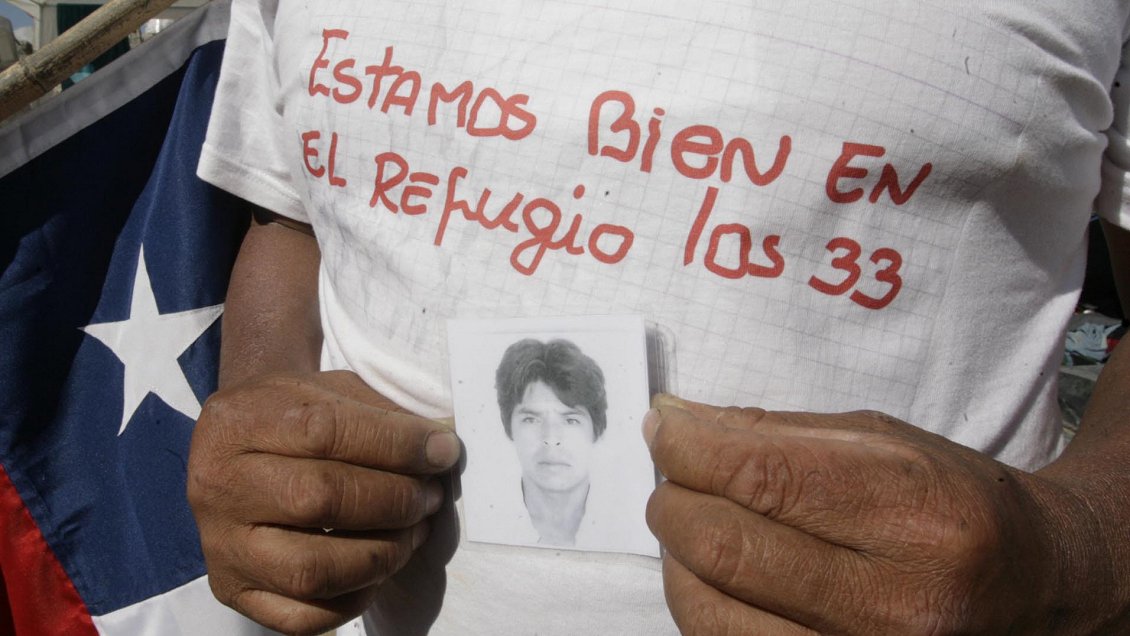 Estamos Bien En
El Refugio los 33